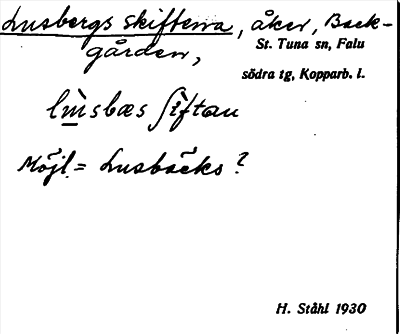 Lusbergs skifterna, åker, Back-
gården,
St. Tuna sn, Falu
södra tg, Kopparb. l.
Möjl. = Lusbäcks?
H. Ståhl 1930